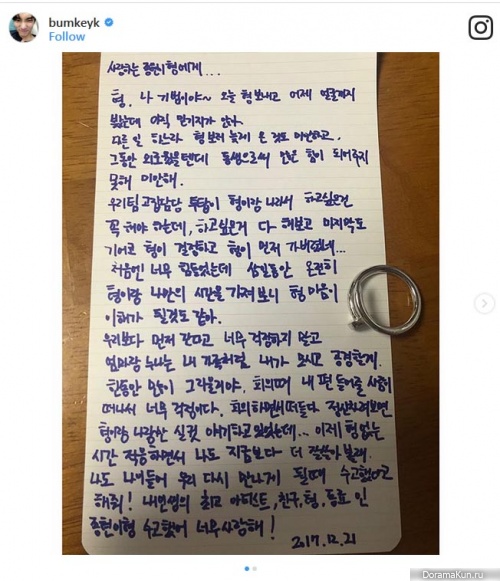 bumkeyk
Follow
사랑하는 종현이형에게...
형. 나 기범이야~ 오늘 형 보내고 어제 얼굴까지
봤는데 아직 믿기지가 않아.
다른 일 하느라 형 보러 늦게 온 것도 미안하고,
그동안 외로웠을텐데 동생으로써 많은 힘이 되어주지
못해 미안해.
우리팀 고집담당 투탑이 형이랑 나라서 하고싶은건
꼭 해야 하는데, 하고싶은거 다 해보고 마지막도
기어코 형이 결정하고 형이 먼저 가버렸네...
처음엔 너무 힘들었는데 삼일동안 온전히
형이랑 나만의 시간을 가져보니 형 마음이
이해가 될것도 같아.
우리보다 먼저 간다고 너무 걱정하지 말고
엄마랑 누나는 내 가족처럼 내가 모시고 공경할게.
한동안 많이 그리울거야. 회의때 내 편 들어줄 사람이
떠나서 너무 걱정이다. 회의하면서 떠들다 정신차려보면
형이랑 나랑만 실컷 얘기하고 있었는데... 이제 형 없는
시간 적응하면서 나도 지금보다 더 잘살아볼래.
나도 나이들어 우리 다시 만나게 될때 수고했다고
해줘! 내인생의 최고 아티스트, 친구, 형, 동료 인
종현이형 수고했어 너무 사랑해!
2017.12.21
DoramaKun.ru